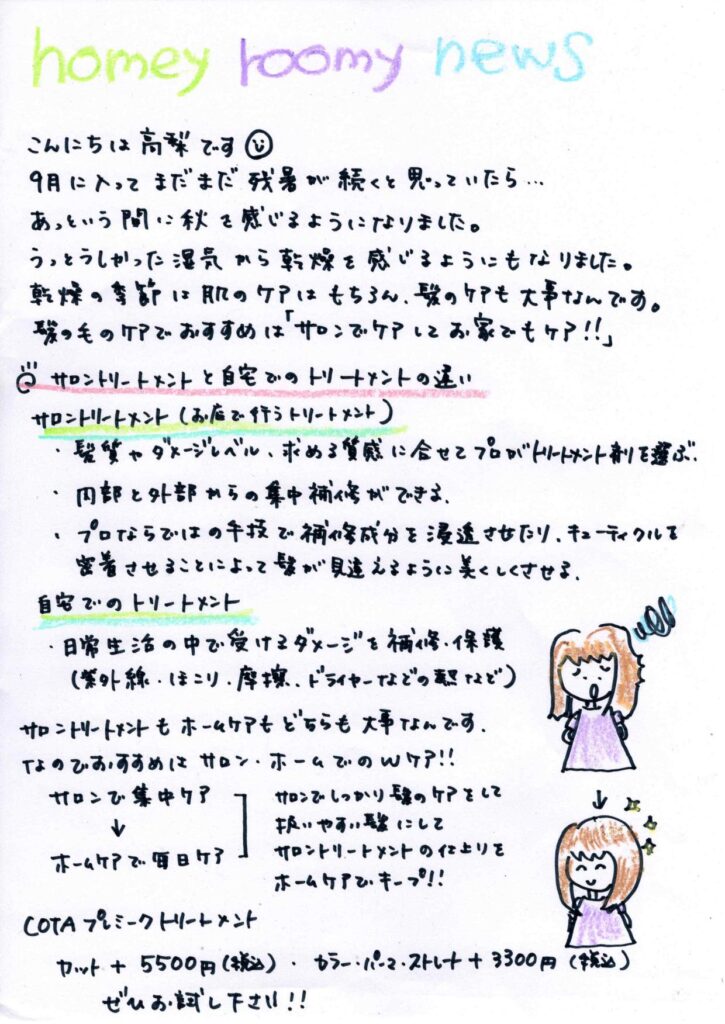 homey roomy news
こんにちは高梨です
9月に入ってまだまだ残暑が続くと思っていたら…
あっという間に秋を感じるようになりました。
うっとうしかった湿気から乾燥を感じるようにもなりました。
乾燥の季節は肌のケアはもちろん、髪のケアも大事なんです。
髪の毛のケアでおすすめは「サロンでケアしてお家でもケア!!」
サロントリートメントと自宅でのトリートメントの違い
サロントリートメント(お店で行うトリートメント)
・髪質やダメージレベル、求める質感に合せてプロがトリートメント剤を選ぶ.
・内部と外部からの集中補修ができる.
・プロならではの手技で補修成分を浸透させたり、キューティクルを
密着させることによって髪が見違えるように美くしくさせる.
自宅でのトリートメント
・日常生活の中で受けるダメージを補修・保護
(紫外線・ほこり・摩擦、ドライヤーなどの熱など)
サロントリートメントもホームケアもどちらも大事なんです.
なのでおすすめはサロン・ホームでのWケア!!
サロンで集中ケア
↓
ホームケアで毎日ケア
サロンでしっかり髪のケアをして
扱いやすい髪にして
サロントリートメントの仕上りを
ホームケアでキープ!!
↓
COTAプレミークトリートメント
カット+5500円(税込)・カラー・パーマ・ストレート+3300円(税込)
ぜひお試し下さい!!